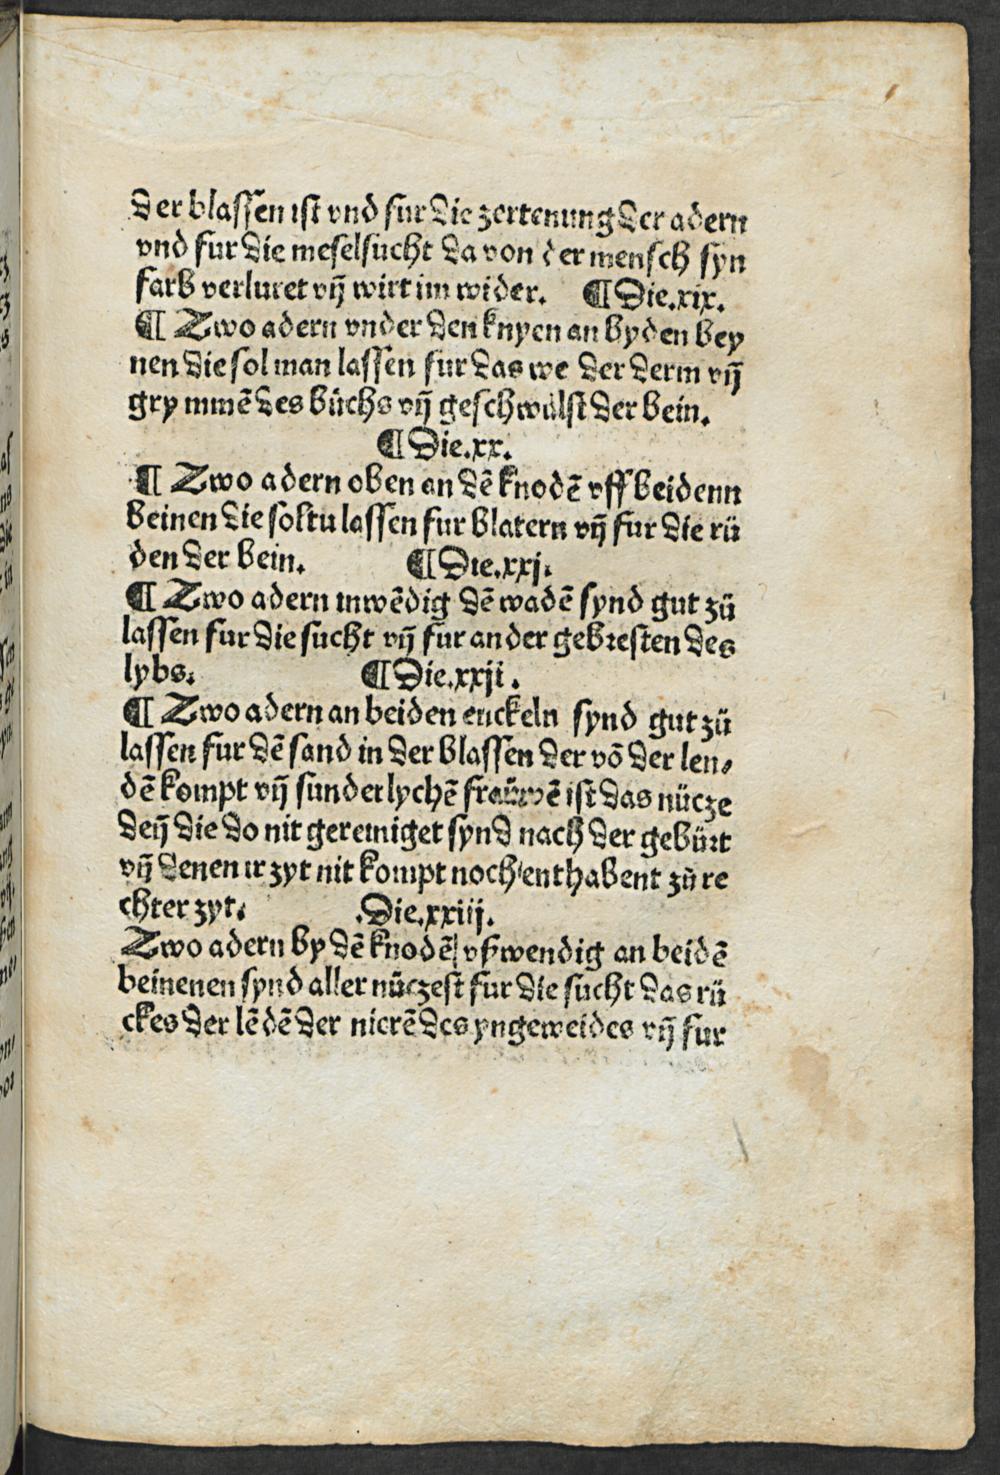 der blassen ist vnd fur die zertenung der adern
vnd fur die meselsucht da von der mensch syn
farb verluret vñ wirt im wider. ¶ Die.xix.
¶ Zwo adern vnder den knyen an byden bey
nen die sol man lassen fur das we der derm vñ
grymmē des buͤchs vñ geschwulst der bein.
¶ Die.xx.
¶ Zwo adern oben an dē knodē vff beidenn
beinen die soltu lassen fur blatern vñ fur die rü
den der bein. ¶ Die.xxj.
¶ Zwo adern inwēdig dē wadē synd gut zü
lassen fur die sucht vñ fur ander gebresten des
lybs. ¶ Die.xxji.
¶ Zwo adern an beiden enckeln synd gut zü
lassen fur dē sand in der blassen der vō der len⸗
dē kompt vñ sunderlychē frauwē ist das nücze
den̄ die do nit gereiniget synd nach der gebürt
vñ denen ir zyt nit kompt noch enthabent zü re
chter zyt. .Die.xxiij.
Zwo adern by dē knodē vßwendig an beidē
beinenen synd aller nüczest fur die sucht das rü
ckes der lēdē der nierē des yngeweides vñ fur